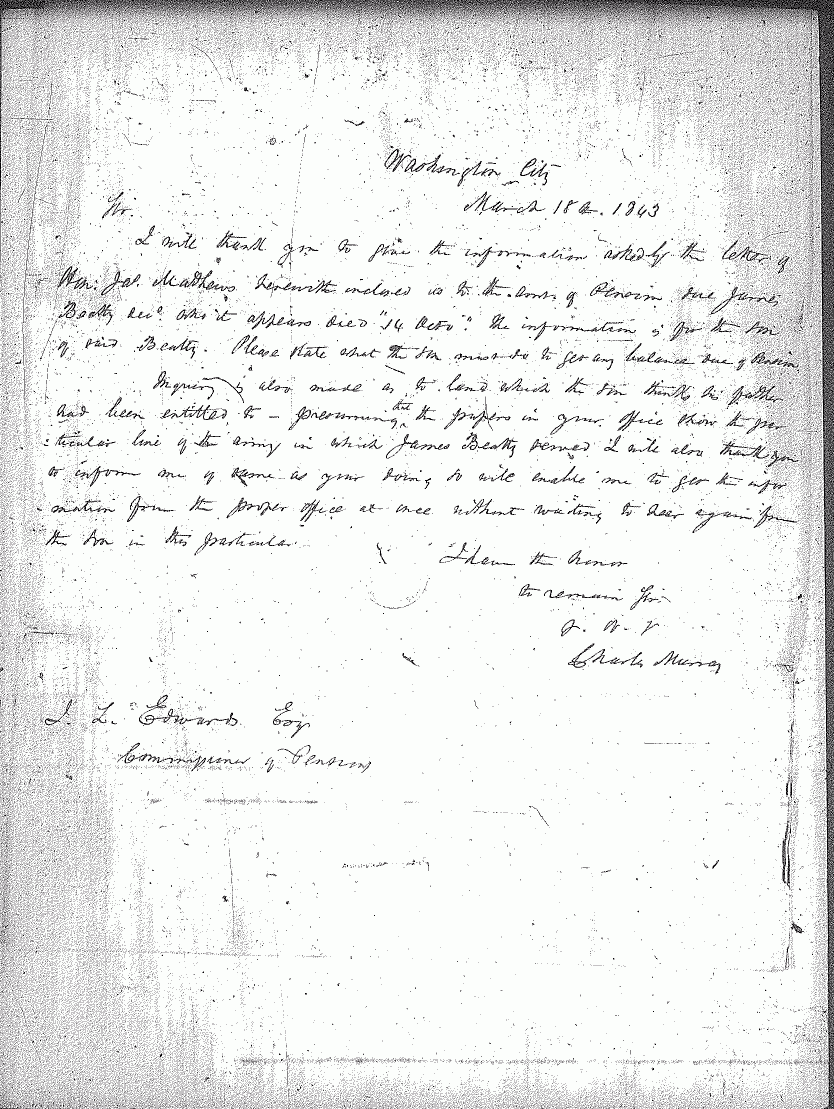 Washington City
March 18th. 1843
Sir.
I will thank you to give the information asked by the letter of
Hon: Jas. Mathews herewith inclosed as to the amt. of Pension due James
Beatty decd. who it appears died "14 Octo". The information is for the son
of said Beatty. Please state what the son must do to get any balance due of Pension
Inquiry is also made as to land which the son thinks his father
had been entitled to - presuming that the papers in your office show the par
:ticular line of the army in which James Beatty served I will also thank you
to inform me of same as your doing so will enable me to get the infor
-mation from the proper office at once without waiting to hear again from
the son in this particular.
I have the honor
to remain Sir
Charles Murray
J. L. Edwards Esq
Commissioner of Pensions